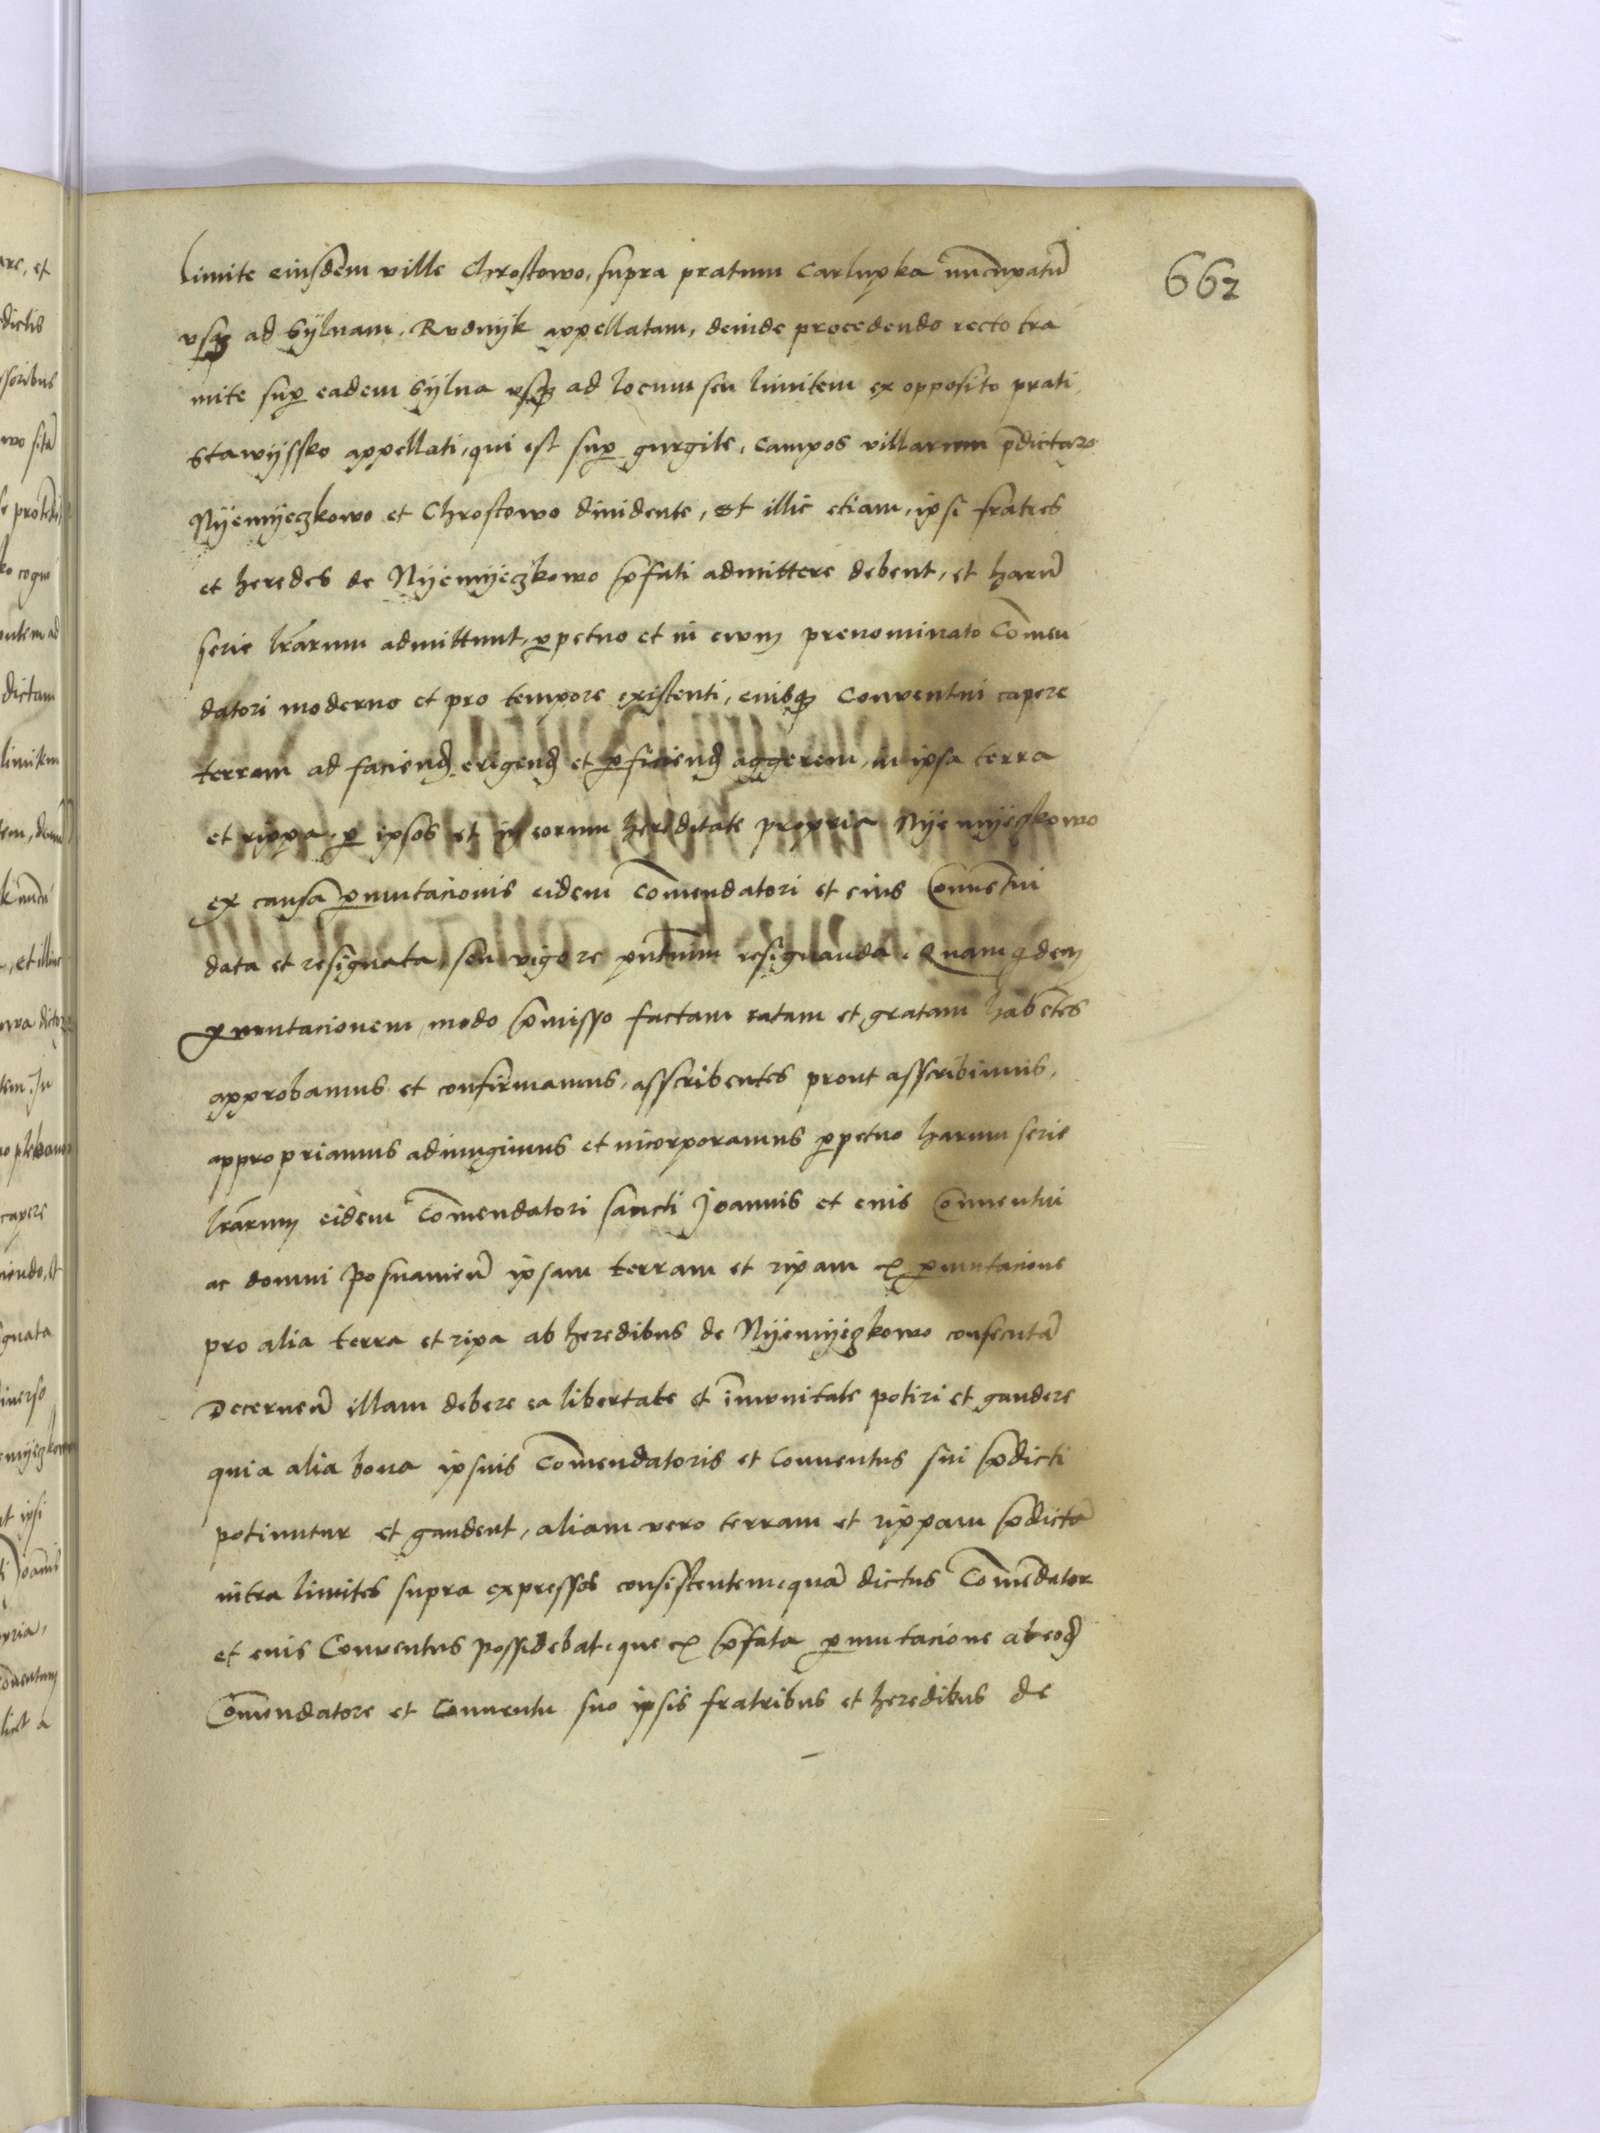 662
limite eiusdem ville Chrostowo, supra pratum Carlupka nūcupatū
vsq ad Sylnam, Rudnyk appellatam, deinde procedendo recto tra
mite sup eadem Sylua vsq ad locum seu limitem ex opposito prati
Stawyssko appellati, qui est sup gurgite, campos villarum pdictaru
Nyemyeczkowo et Chrostowo diuidente, et illic etiam, ipsi fratres
et heredes de Nyemyeczkowo pfati admittere debent, et harū
serie lrarum admittunt, ppetuo et in ewm prenominato Comen
datori moderno et pro tempore existenti, eiusq Conventui capere
terram ad faciend erigend et pficiend aggerem, in ipsa terra
et rippa p ipsos et in eorum hereditate propria Nyemyeczkowo
ex causa pmutacionis eidem Comendatori et eius Conuentui
data et resignata, seu vigore pntium resignanda. Quam qdem
pmutacionem, modo pmisso factam ratam et gratam habentes
approbamus et confirmamus, asscribentes prout asscribimus,
appropriamus adiungimus et incorporamus ppetuo harum serie
lrarum eidem Comendatori sancti Joannis et eius Conuentui
ac domui Posnanien ipsam terram et ripam ex pmutacione
pro alia terra et ripa ab heredibus de Nyemyeczkowo consecutā
Decernen illam debere ea libertate et imunitate potiri et gaudere
quia alia bona ipsius Comendatoris et Conuentus sui pdicti
potiuntur et gaudent, aliam vero terram et rippam pdictā
intra limites supra expressos consistentem, quā dictus Comēdator
et eius Conuentus possidebat, que ex pfata pmutacione ab eod
Comendatore et Conuentu suo ipsis fratribus et heredibus de